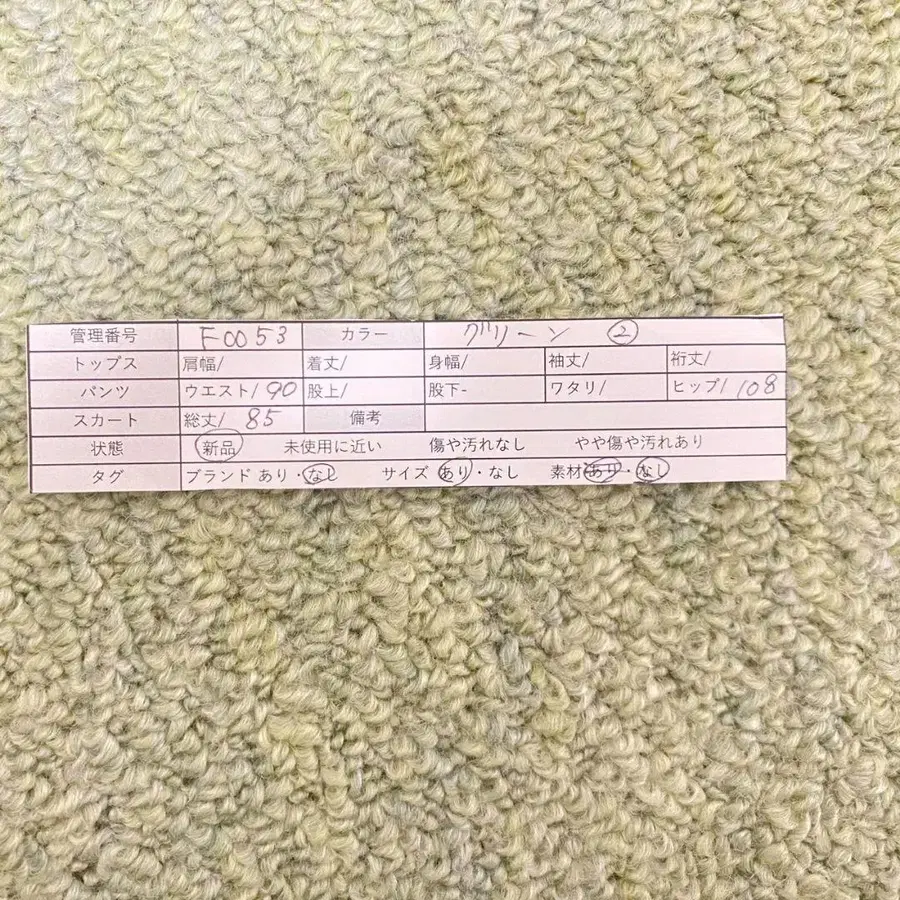 管理番号 F0053 カラー グリーン ②
トップス 肩幅/ 着丈/ 身幅/ 袖丈/ 裄丈/
パンツ ウエスト/90 股上/ 股下- ワタリ/ ヒップ/108
スカート 総丈/ 85 備考
状態 新品 未使用に近い 傷や汚れなし やや傷や汚れあり
タグ ブランド あり・なし サイズ あり・なし 素材 あり・なし